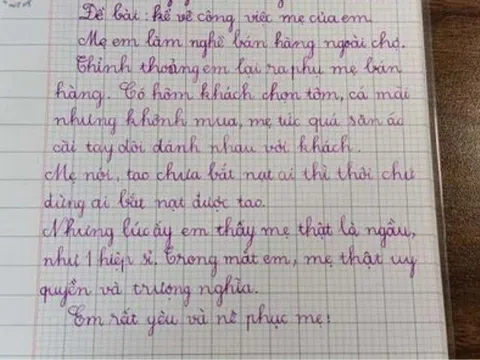 Đề bài: kể về công việc mẹ của em
Mẹ em làm nghề bán hàng ngoài chợ.
Thỉnh thoảng em lại ra phụ mẹ bán
hàng. Có hôm khách chọn tôm, cá mãi
nhưng không mua, mẹ tức quá săn áo
cài tay đôi đánh nhau với khách.
Mẹ nói, tao chưa bắt nạt ai thì thôi chứ
đừng ai bắt nạt được tao.
Nhưng lúc ấy em thấy mẹ thật là ngầu,
như 1 hiệp sĩ. Trong mắt em, mẹ thật uy
quyền và trượng nghĩa.
Em rất yêu và nể phục mẹ!